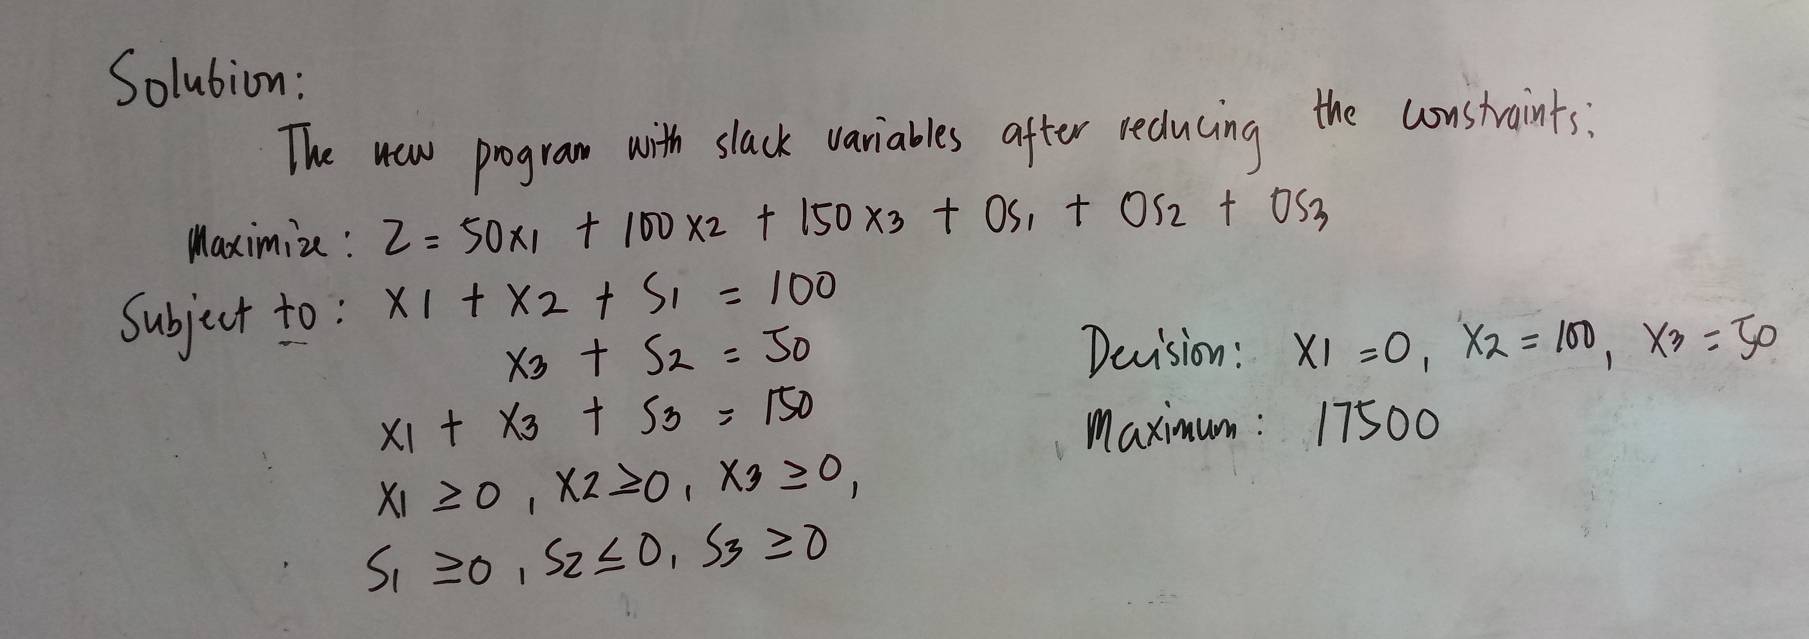 Solution:
The new program with slack variables after reducing the constraints:
Maximize: Z = 50x1 + 100x2 + 150x3 + 0S1 + 0S2 + 0S3
Subject to: x1 + x2 + S1 = 100
x3 + S2 = 50
x1 + x3 + S3 = 150
x1 ≥ 0, x2 ≥ 0, x3 ≥ 0,
S1 ≥ 0, S2 ≤ 0, S3 ≥ 0
Decision: x1 = 0, x2 = 100, x3 = 50
Maximum: 17500